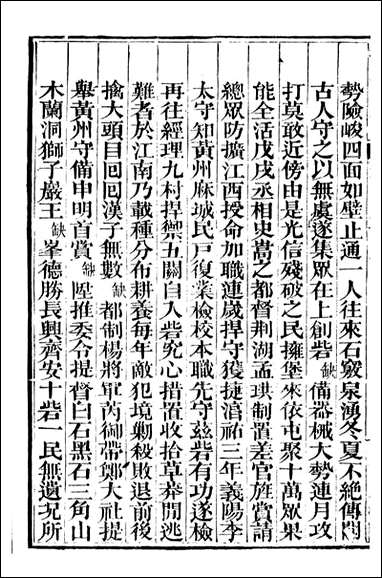 勢險峻四面如壁止通一人往來石竅泉湧冬夏不絕傳聞
古人守之以無虞遂集眾在上創砦缺備器械大勢連月攻
打莫敢近傍由是光信殘破之民擁堡來依屯聚十萬眾果
能全活戊戌丞相史嵩之都督荆湖孟珙制置差官旌賞請
總眾防擴江西授命加職連歲捍守獲捷淯祐三年義陽李
太守知黃州麻城民戸復業檢校本職先守兹砦有功遂檄
再往經理九村捍禦五關白人砦究心措置收拾草莽閒逃
難者於江南乃載種分布耕養每年敵犯境剿殺敗退前後
擒大頭目回回漢子無數缺都制楊將軍芮御帶鄭大社提
舉黃州守備申明首賞缺陞推委令提督白石黑石三角山
木蘭洞獅子巖王缺峯德勝長興齊安十砦一民無遺況所